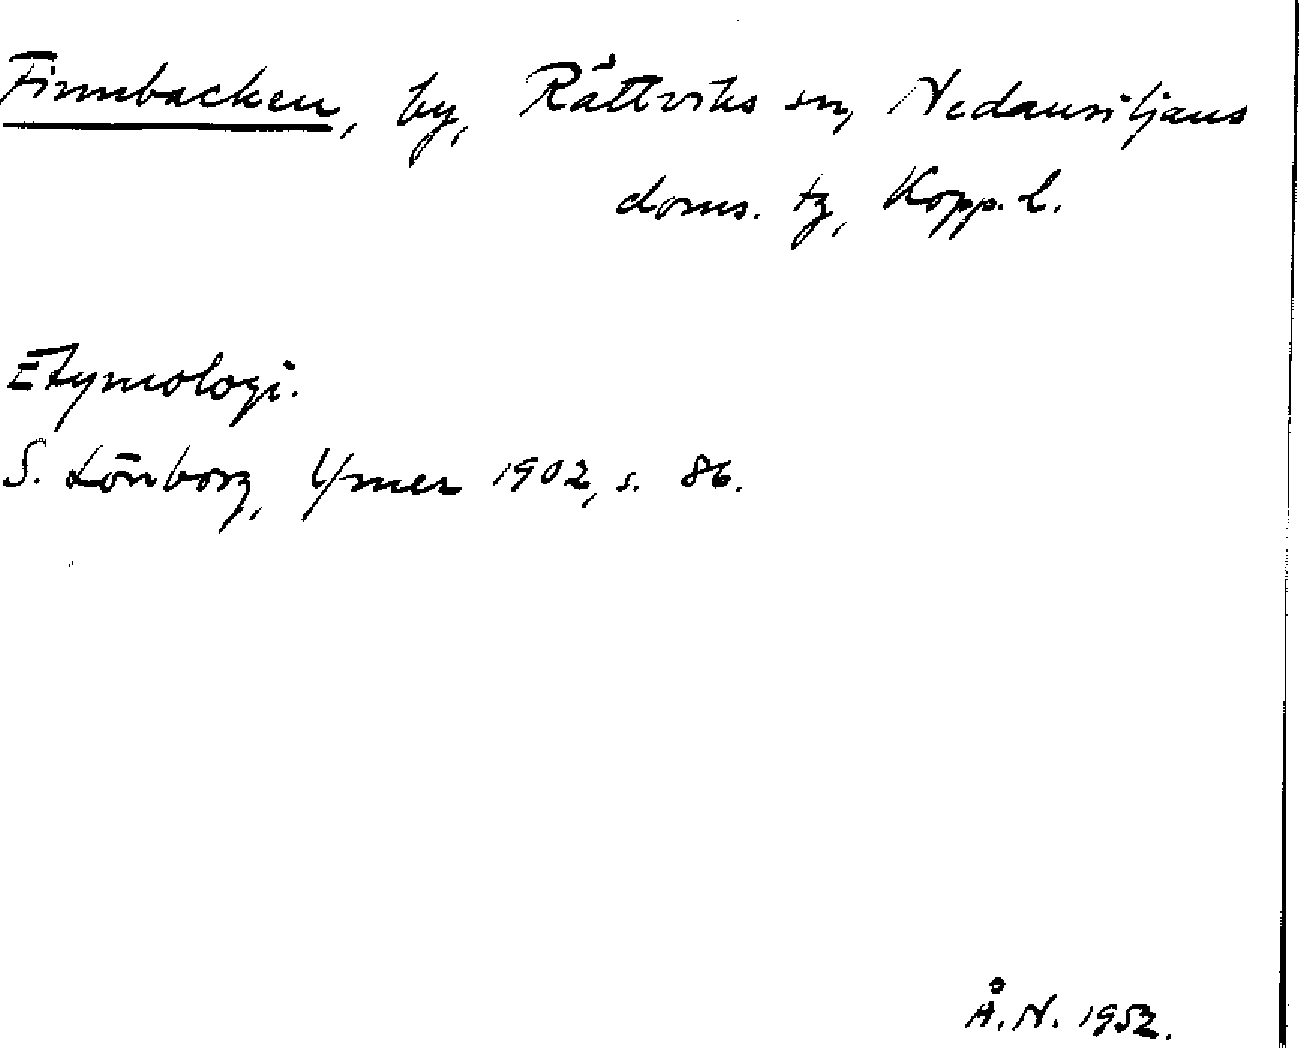 Finnbacken, by, Rättviks sn, Nedansiljans
doms. tg, Kopp. l.
Etymologi.
S. Lönborg, Ymer 1902, s. 86.
Å. N. 1952.